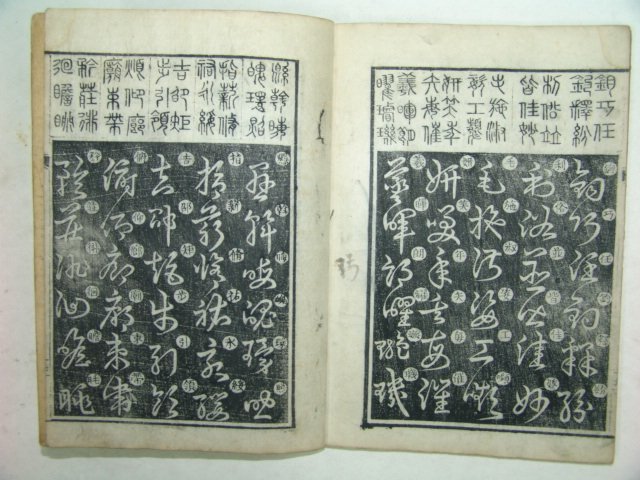 鈞巧任
釣釋紛
利俗竝
皆佳妙
毛施淑
姿工顰
妍笑年
矢每催
羲暉朗
曜璇璣
鈞巧任釣釋紛
利俗竝皆佳妙
毛施淑姿工顰
妍笑年矢每催
羲暉朗曜璇璣
縣斡晦
魄環照
指薪修
祜永綏
吉邵矩
步引領
俯仰廊
廟束帶
矜莊徘
徊瞻眺
懸斡晦魄環照
指薪修祜永綏
吉邵矩步引領
俯仰廊廟束帶
矜莊徘徊瞻眺